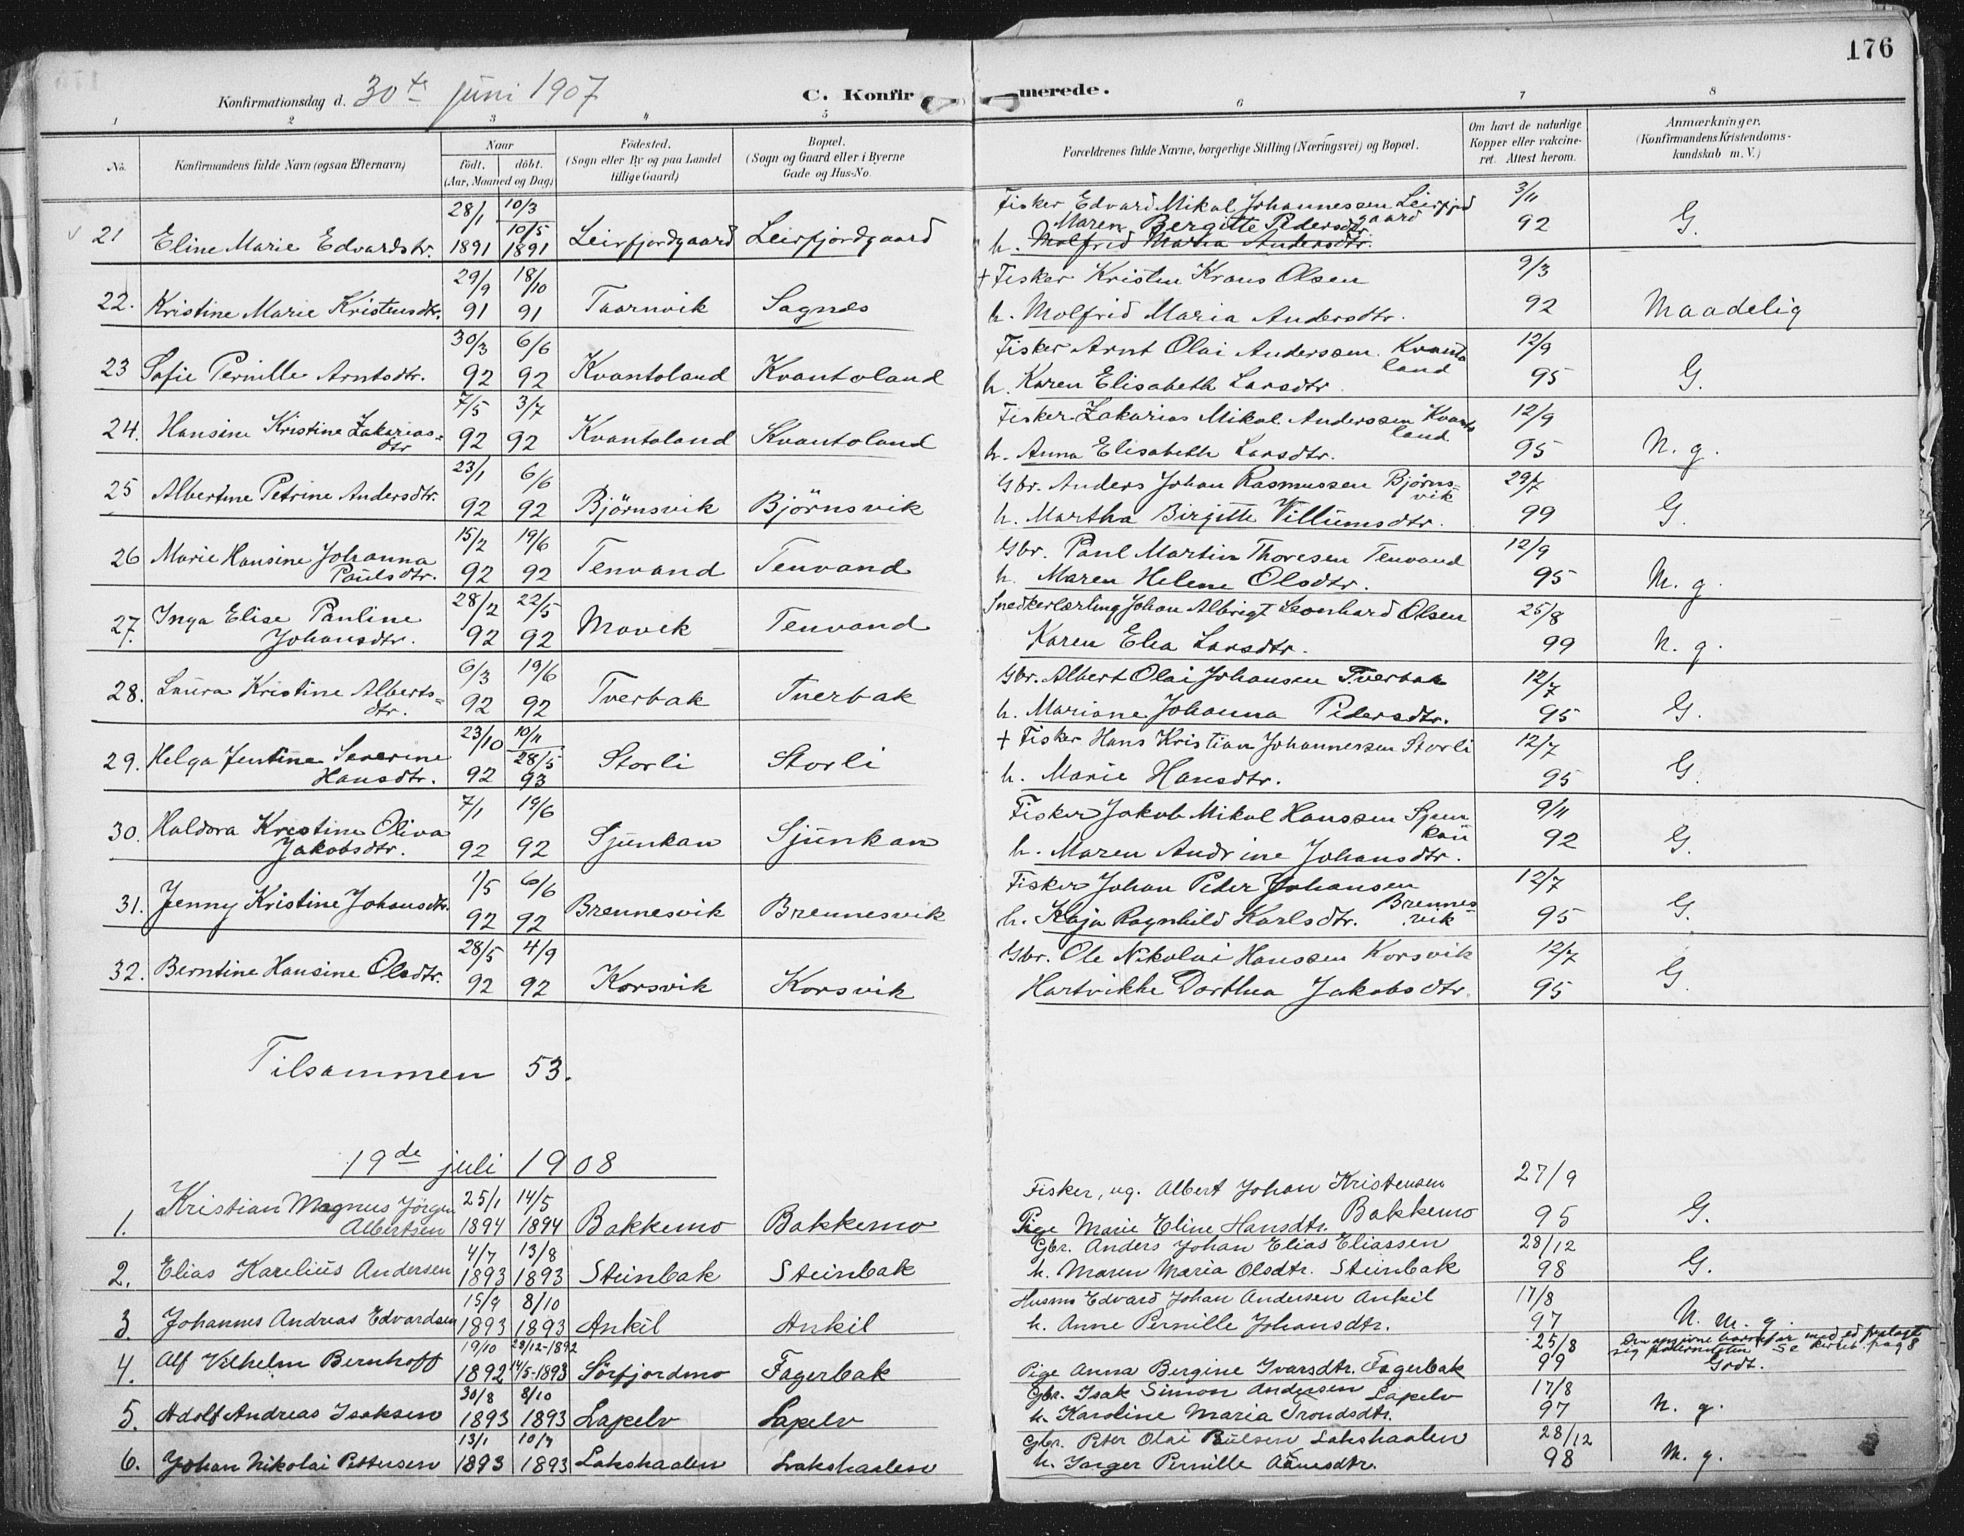 176
Konfirmationsdag d. 30te juni 1907 C. Konfirmerede.
1 2 3 4 5 6 7 8
No. Konfirmandens fulde Navn (ogsaa Efternavn) Naar født. døbt. (Aar, Maaned og Dag) Fødested. (Sogn eller By og paa Landet tillige Gaard) Bopæl. (Sogn og Gaard eller i Byerne Gade og Hus-No. Forældrenes fulde Navne, borgerlige Stilling (Næringsvei) og Bopæl. Om havt de naturlige Kopper eller vaccineret. Attest herom. Anmærkninger. (Konfirmandens Kristendomskundskab m. V.)
28/1 10/3 10/5 Fisker Edvard Mikal Johannesen Leirfjord 3/11
gaard
Maren Bergitte Pedersdtr.
21 Eline Marie Edvardstr. 1891 1891 Leirfjordgaard Leirfjordgaard h. Molfrid Maria Andersdtr. 92 G.
29/9 18/10 + Fisker Kristen Krans Olsen 9/3
22. Kristine Marie Kristensdtr. 91 91 Taarnvik Sagnes h. Molfrid Maria Andersdtr. 92 Maadelig
30/3 6/6 Fisker Arnt Olai Anderssen Kvanto 12/9
land
23 Sofie Pernille Arntsdtr. 92 92 Kvantoland Kvantoland h. Karen Elisabeth Larsdtr. 95 G.
7/5 3/7 Fisker Zakarias Mikal Anderssen Kvanto 12/9
land
24. Hansine Kristine Zakarias=
dtr 92 92 Kvantoland Kvantoland h. Anna Elisabeth Larsdtr. 95 N. g.
23/1 6/6 Gbr. Anders Johan Rasmussen Bjørns= 29/7
vik
25 Albertine Petrine Andersdtr. 92 92 Björnsvik Björnsvik h. Martha Birgitte Villumsdtr. 99 G.
15/2 19/6 Gbr. Paul Martin Thoresen Tenvand 12/9
26 Marie Hansine Johanna
Paulsdtr. 92 92 Tenvand Tenvand h. Maren Helene Olsdtr. 95 M. g.
28/2 22/5 Snedkerlærling Johan Albrigt Leonhard Olsen 25/8
27. Inga Elise Pauline
Johansdtr. 92 92 Movik Tenvand Karen Elea Larsdtr. 99 N. g.
6/3 19/6 Gbr. Albert Olai Johansen Tverbak 12/7
28. Laura Kristine Alberts=
dtr. 92 92 Tverbak Tverbak h. Mariane Johanna Pedersdtr. 95 G.
23/10 10/11 28/5 + Fisker Hans Kristian Johannessen Storli 12/7
29. Helga Jentine Severine
Hansdtr. 92 93 Storli Storli h. Marie Hansdtr. 95 G.
7/1 19/6 Fisker Jakob Mikal Hanssen Sjun 9/11
kan
30. Haldora Kristine Oliva
Jakobsdtr. 92 92 Sjunkan Sjunkan h. Maren Andrine Johansdtr. 92 G.
1/5 6/6 Fisker Johan Peder Johansen 12/7
Brennes=
vik
31. Jenny Kristine Johansdtr. 92 92 Brennesvik Brennesvik h. Kaja Ragnhild Karlsdtr. 95 G.
28/5 4/9 Gbr. Ole Nikolai Hanssen Korsvik 12/7
32. Berntine Hansine Olsdtr. 92 92 Korsvik Korsvik Hartvikke Dorthea Jakobsdtr. 95 G.
Tilsammen 53.
19de juli 1908
25/1 14/5 Fisker, ug. Albert Johan Kristensen 27/9
Bakkemo
1. Kristian Magnus Jørgen
Albertsen 1894 1894 Bakkemo Bakkemo Pige Marie Eline Hansdtr. 95 G.
4/7 13/8 Gbr. Anders Johan Elias Eliassen 28/12
2. Elias Karelius Andersen 1893 1893 Steinbak Steinbak h. Maren Maria Olsdtr. Steinbak 98 G.
15/9 8/10 Husm. Edvard Johan Andersen Ankil 17/8
3. Johannes Andreas Edvardsen 1893 1893 Ankil Ankil h. Anne Pernille Johansdtr. 97 N. m. g.
19/10 28/12-1892 25/8 Den barnefar med ed fralagt
sig paterniteten se pag 8
4. Alf Vilhelm Bernhoff 1892 14/5-1893 Sörfjordmo Fagerbak Pige Anna Bergine Ivarsdtr. Fagerbak 99 Godt.
30/8 8/10 Gbr. Isak Simon Andersen Lapelv 17/8
5. Adolf Andreas Isaksen 1893 1893 Lapelv Lapelv h. Karoline Maria Trondsdtr. 97 N. g.
13/1 10/7 Gbr. Peter Olai Lakshaalen 28/12
6. Johan Nikolai Pettersen 1893 1893 Lakshaalen Lakshaalen h. Inger Pernille 98 M. g.